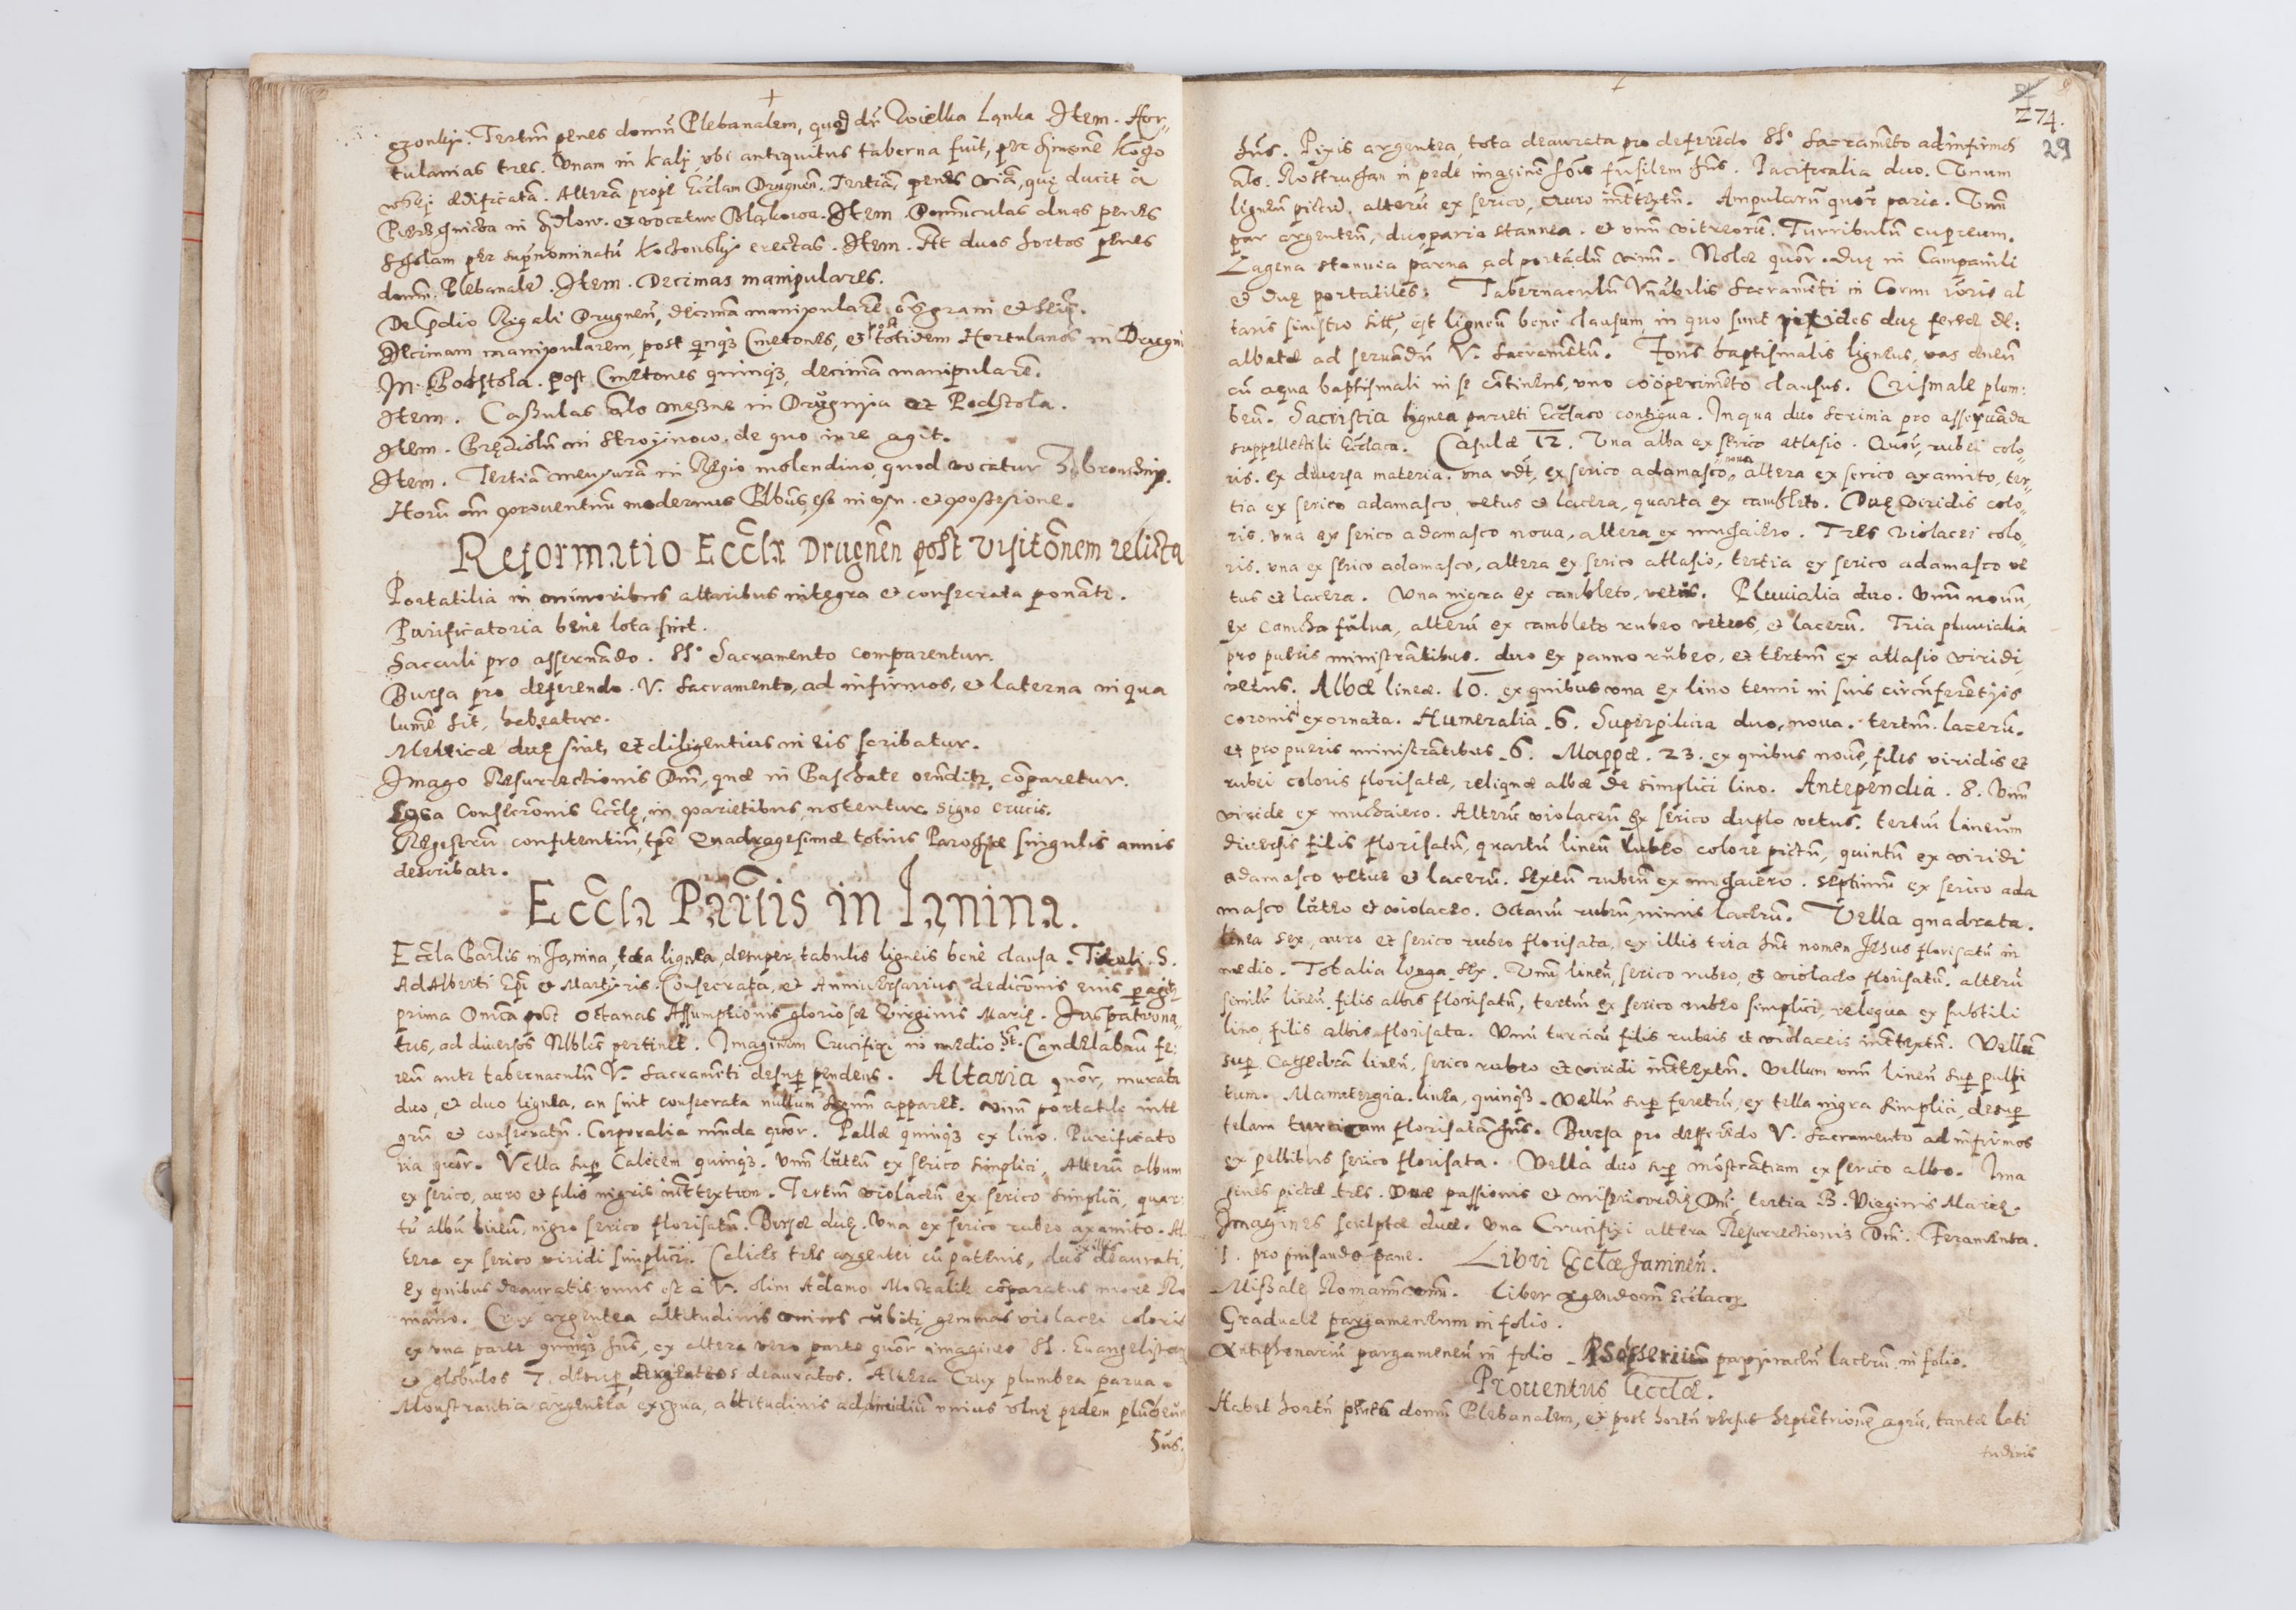 czonkji. Tertiū penes domū Plebanalem, quod dr̄ Wielka Ląnka. Item. Hor-
tulanias tres. Unam in Kalj ubi antiquitus taberna fuit, per Simonē
aedificatā. Alterā prope Ecclam Drugnen̄. Tertiā, penes viā, quę ducit à
Pierzchnicza in et vocatur Item. Domūculas duas penes
Scholam per supnominatū erectas. Item. Et duos hortos penes
domū Plebanalē. Item. Decimas manipulares.
De p̄dio Regali Drugnen̄, decimā manipularē
Decimam manipularem post quīq3 Cmetones, et post totidem Hortulanos in Drugni
In Podstola. post Cmetones quinq3, decimā manipularē.
Item. Caßulas al̄o Meßne in Drugnja et Podstola.
Item. Prędiolū in Stroyinow. de quo iure agit.
Item. Tertiā mensurā in Regio molendino, quod vocatur
Horū om̄ proventuū modernus Plbūs est in usu. et possessione.
Reformatio Eccl̄a Drugnen̄ post visitōnem relicta
Portatilia in minoribus altaribus integra et consecrata ponāt̄r.
Purificatoria bene lota sint.
Sacculi pro asservādo. SS° Sacramento comparentur.
Bursa pro deferendo. V. Sacramento, ad infirmos, et laterna in qua
lumē sit, habeatur.
Metricæ duę sint, et diligentius in eis scribatur.
Imago Resurrectionis Dn̄i, quæ in Paschate ostēditr, cōparetur.
Loca Consecrōnis Eccl̄ę, in parietibus notentur signo crucis.
Regestrū confitentiū, tp̄e Quadragesimæ totius Parochiæ singulis annis
describatr.
Eccl̄a Parl̄is in Ianina.
Eccl̄a Parl̄is in Janina, tota lignea, desuper tabulis ligneis bene clausa. Tituli. S.
Adalberti Ep̄i et Martyris. Consecrata, et Anniversarius dedicōnis eius pagitr
prima Dnīca post Octavas Assumptionis gloriosæ Virginis Marię. Jus patrona-
tus, ad diversos Nblēs pertinet. Imaginem Crucifixi in medio Candelabrū fe:
reū ante tabernaculū V. Sacramēti desup pendens. Altaria quōr, murata
duo, et duo lignea, an sint consecrata nullum signū apparet. Unū portatile inte
grū et consecratū. Corporalia mūda quōr. Pallæ quinq3 ex lino. Purificato
ria quōr. Vella sup Calicem quinq3. Unū lūteū ex serico simplici, Alterū album
ex serico, auro et filis nigris intextum. Tertiū violaceū ex serico simplici, quar:
tū albū lineū, nigro serico florisatū. Bursæ duę. Una ex serico rubeo axamito. Al
tera ex serico viridi simplici. Calices tres argentei cū patenis, duo ex illis deaurati,
ex quibus deauratis unus est à V. olim Adamo cōparatus more Ro
mano. Crux argentea altitudinis unius cubiti, gemmas violacei coloris
ex una parte quinq3 hn̄s, ex altera vero parte quōr imagines SS. Evangelistarū
et globulos 7. desup, argenteos deauratos. Altera Crux plumbea parva.
Monstrantia argentea exigua, altitudinis ad dimidiū unius ulnę pedem plūbeū
hn̄s.
274.
29
hn̄s. Pixis argentea, tota deaurata pro deferēdo SS° Sacramēto ad infirmos
al̄s. in pede imaginē fusilem hn̄s. Pacificalia duo. Unum
ligneū pictū, alterū ex serico, auro intextū. Ampularū quōr paria. Unū
par argenteū, duo paria stannea. et unū vitreorū. Turribulū cupreum.
Lagena stannea parva ad portādū vinū. Nolæ quōr. duę in Campanili
et duę portatiles. Tabernaculū Vn̄abilis Sacramēti in Cornu al
taris sinistro est ligneū bene clausum, in quo sunt pixides duę ferreæ de:
albatæ ad servādū V. Sacramētū. Fons baptismalis ligneus, vas æneū
cū aqua baptismali in se cōtinens, uno coopërimēto clausus. Crismale plum:
beū. Sacristia lignea parieti Eccl̄aco contigua. In qua duo scrinia pro asservāda
suppellectili Eccl̄aca. Casulæ 12. Una alba ex serico atlasio. Quōr, rubei colo-
ris. ex diversa materia. una vd̄t, ex serico adamasco nova, altera ex serico axamito, ter-
tia ex serico adamasco, vetus et lacera, quarta ex cambleto. Duę viridis colo-
ris. una ex serico adamasco nova, altera ex muchaiero. Tres violacei colo-
ris. una ex serico adamasco, altera ex serico atlasio, tertia ex serico adamasco ve
tus et lacera. Una nigra ex cambleto, vetus. Pluvialia duo. Unū novū,
ex camcha fulva, alterū ex cambleto rubeo vetus, et lacerū. Tria pluvialia
pro pueris ministrātibus. duo ex panno rubeo, et tertiū ex atlasio viridi
vetus. Albæ lineæ. 10. ex quibus una ex lino tenui in suis circūferētijs
coronis exornata. Humeralia. 6. Superpilicia duo, nova. tertiū. lacerū.
et pro pueris ministrātibus. 6. Mappæ. 23. ex quibus novē, filis viridis et
rubei coloris florisatæ, reliquæ albæ de simplici lino. Antependia. 8. Unū
viride ex muchaiero. Alterū violaceū ex serico duplo vetus. tertiū lineum
diversis filis florisatū, quartū lineū lubeo colore pictū, quintū ex viridi
adamasco vetus et lacerū. sextū rubeū ex muchaiero. septimū ex serico ada
masco lūteo et violaceo. Octavū rubeū nimis lacerū. Vella quadrata.
linea sex, auro et serico rubeo florisata, ex illis tria sūt nomen Jesus florisatū in
medio. Tobalia longa sex. Unū lineū, serico rubeo, et violaceo florisatū. alterū
simile lineū, filis albis florisatū, tertiū ex serico rubeo simplici, reliqua ex subtili
lino, filis albis florisata. Unū turcicū filis rubeis et violaceis intextū. Vellum
sup Cathedrā lineū, serico rubeo et viridi intextū. Vellum unū lineū sup pulpi
tum. Manutergia linea, quinq3. Vellū sup feretrū, ex tella nigra simplici, desup
telam turcicam florisatā hn̄s. Bursa pro defferēdo V. Sacramento ad infirmos
ex pellibus serico florisata. Vella duo sup mōstrātiam ex serico albo. Ima
gines pictæ tres. Duæ passionis et misericordię Dn̄i, tertia B. Virginis Marię.
Imagines sculptæ duæ. Una Crucifixi altera Resurrectionis Dn̄i. Feramenta.
1. pro pinsando pane. Libri Eccl̄æ Janinen̄.
Missale Romanū unū. Liber agendorū Eccl̄acor
Graduale pargameneum in folio.
Antiphonariū pargameneū in folio. Psalteriū papyraceū lacerū in folio.
Proventus Eccl̄æ.
Habet hortū penes domū Plebanalem, et post hortū versus Septētrionē agrū, tantæ lati
tudinis